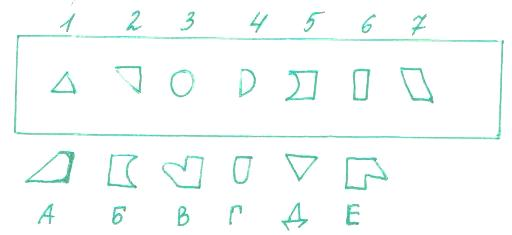 1 2 3 4 5 6 7
А Б В Г Д Е